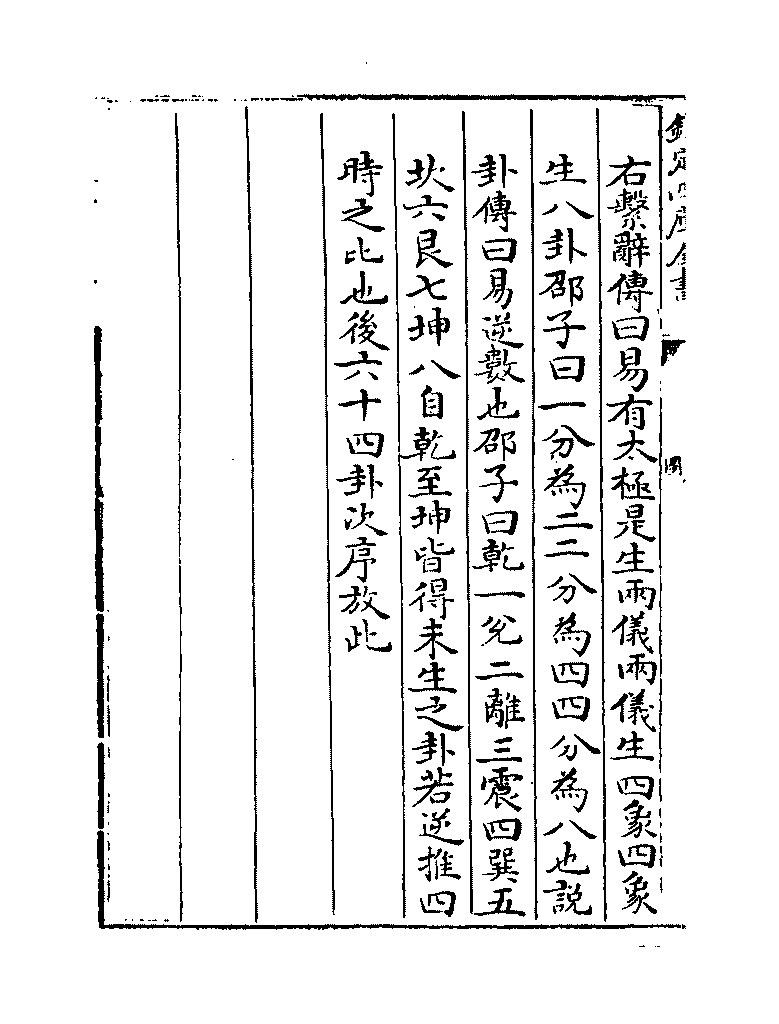 欽定四庫全書
圖
右繫辭傳曰易有太極是生兩儀兩儀生四象四象
生八卦邵子曰一分為二二分為四四分為八也説
卦傳曰易逆數也邵子曰乾一兌二離三震四巽五
坎六艮七坤八自乾至坤皆得未生之卦若逆推四
時之比也後六十四卦次序放此